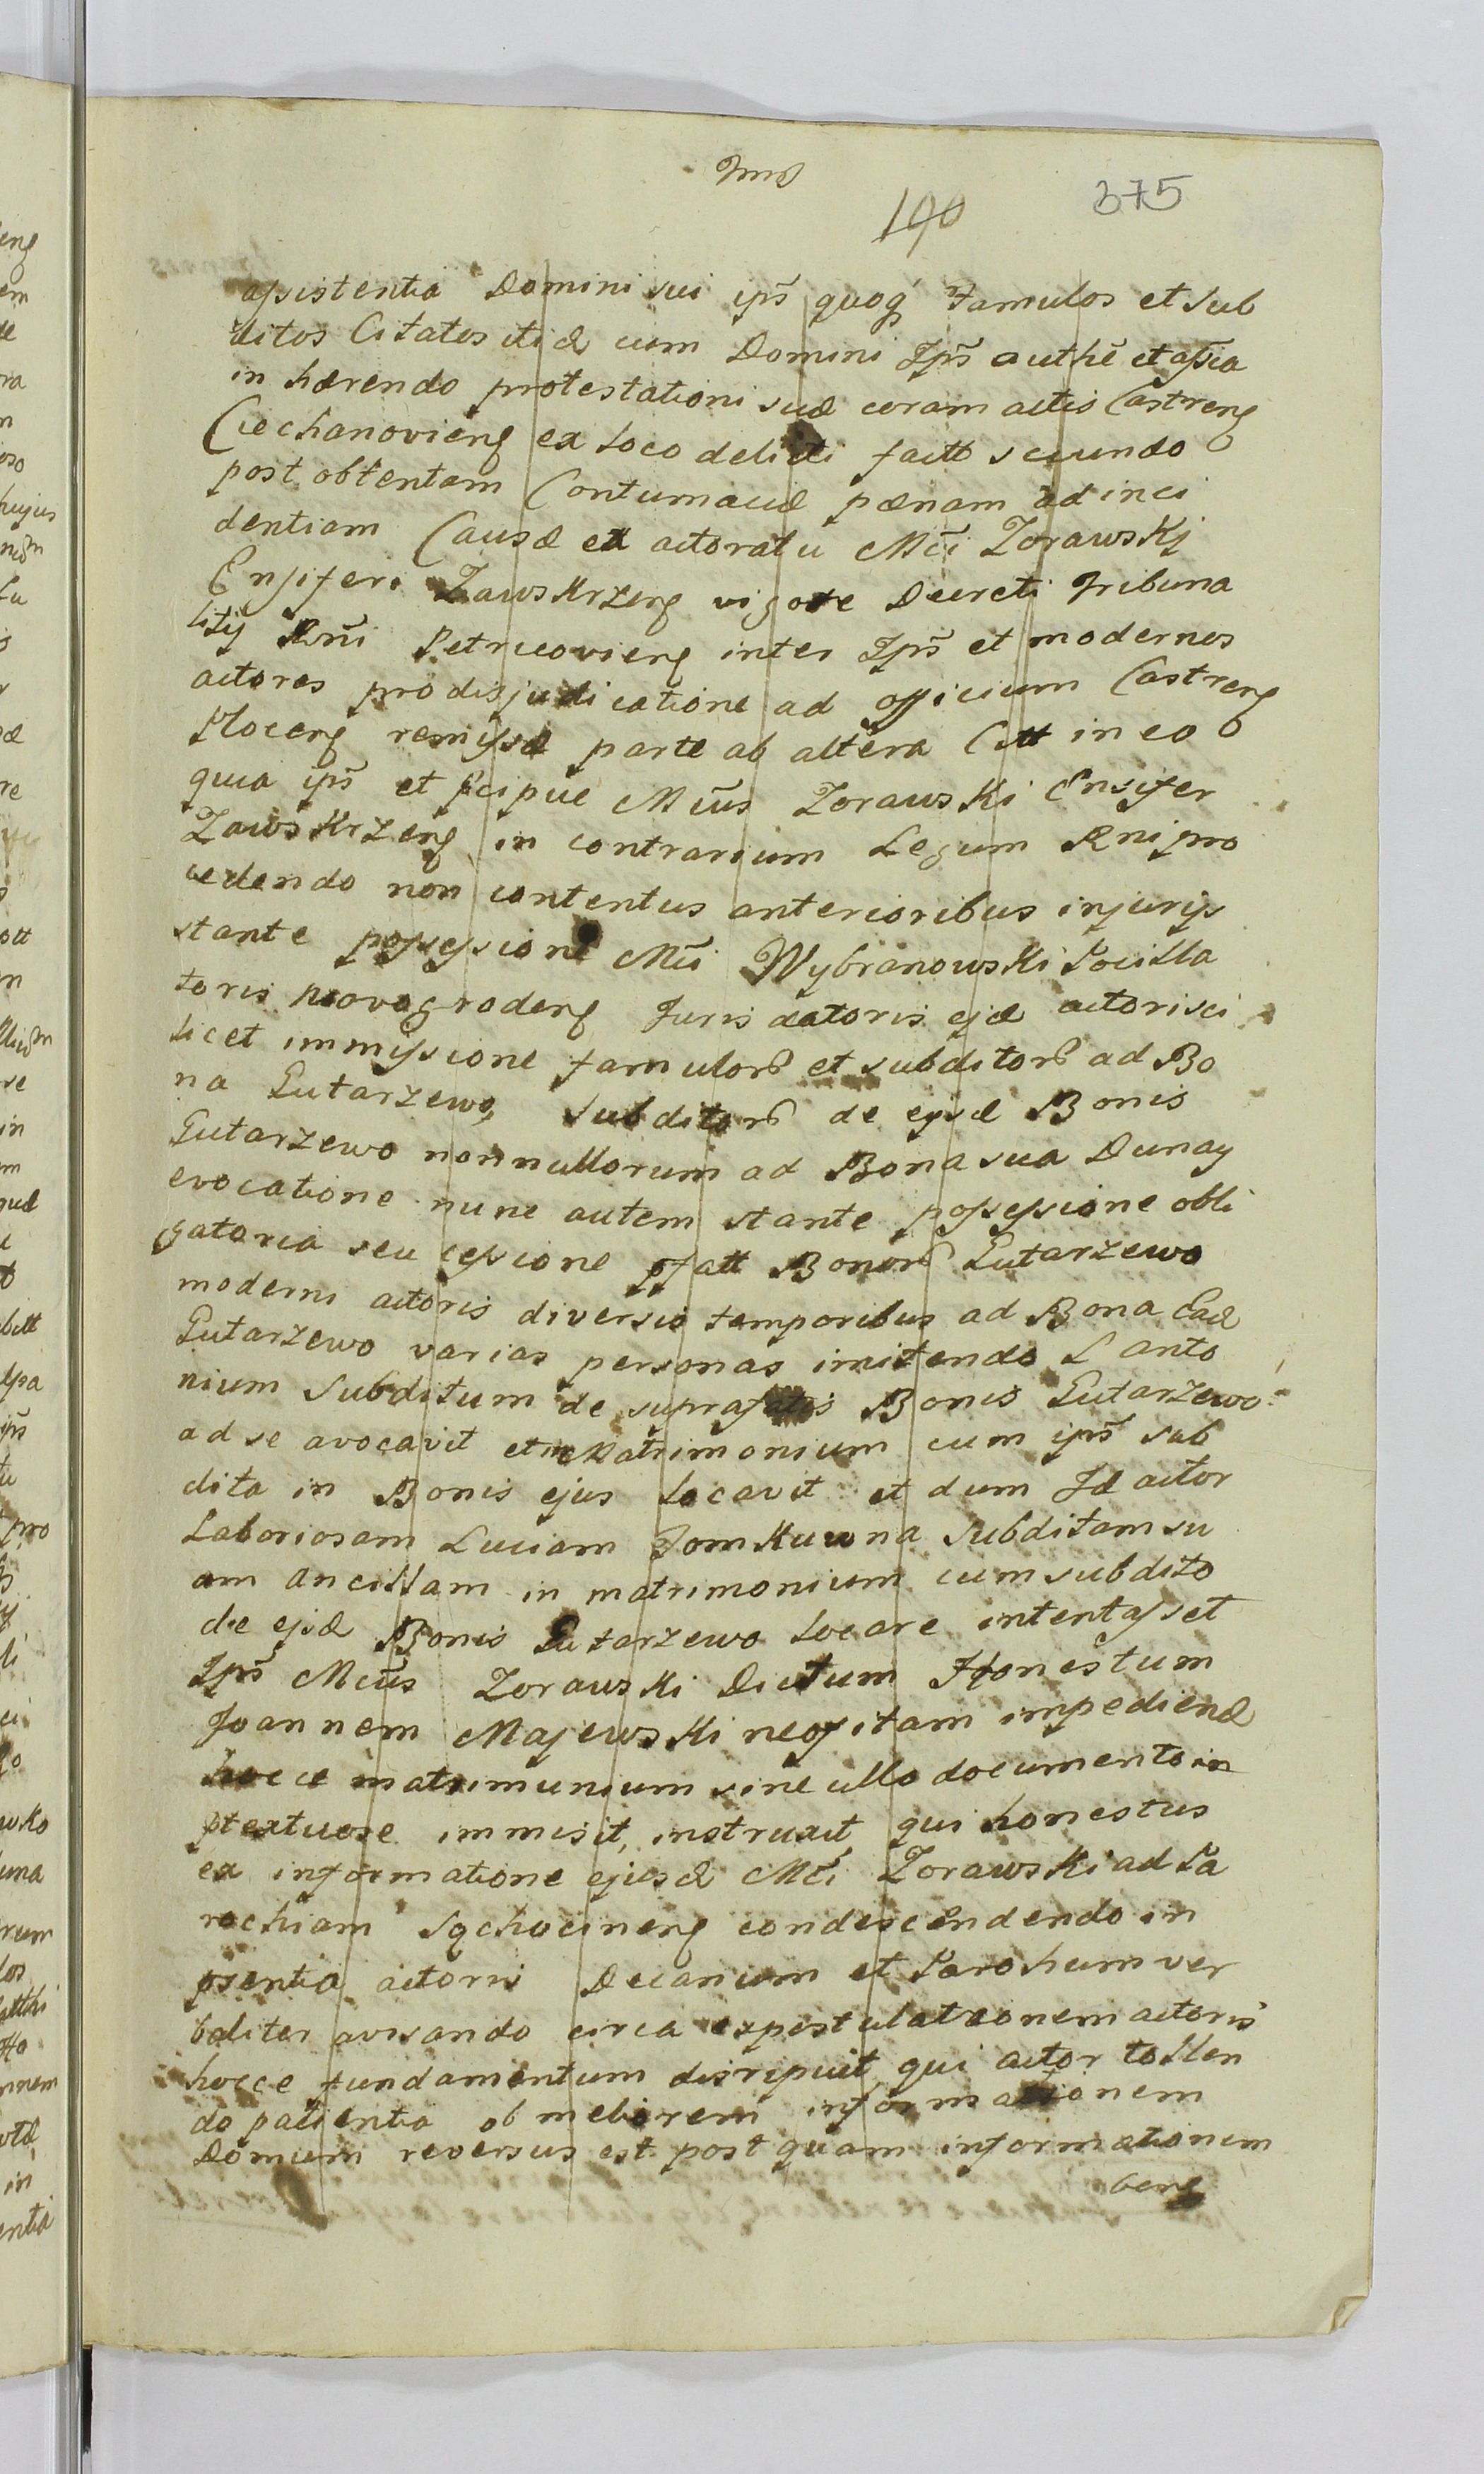 190 375
assistentia Domini sui ips̃ quoq́ Famulos et Sub
ditos Citatos itid cum Domini Ips̃ authẽ et assia
in hærendo protestationi suæ coram actis Castreng
Ciechanovieng ex Loco delicti factt secundo
post obtentam Contumaciæ pænam ad inci
dentiam Causæ ex actoratu Mci Zorawskj
Ensiferi Zawskrzeng vigore Decreti Tribuna
litij Rñi Petricovieng inter Ips̃ et modernos
actores pro disjudicatione ad officium Castreng
Ploceng remissæ parte ab altera Citt in eo
quia ips̃ et pcipue Mc̃us Zorawski Ensifer
Zawskrzeng in contrarium Legum Rni pro
cedendo non contentus anterioribus injurijs
stante possessione Mci Wybranowski Pocilla
toris Novogrodeng Juris datoris ejd actoris sci
licet immissione famulor et subditor ad Bo
na Gutarzewo, Subditor de ejsd Bonis
Gutarzewo nonnullorum ad Bona sua Dunay
evocatione nunc autem stante possessione obli
gatoria seu cessione pfatt Bonor Gutarzewo
moderni actoris diversis temporibus ad Bona Ead
Gutarzewo varias personas imitendo L Anto
nium Subditum de suprafatis Bonis Gutarzewo
ad se avocavit et in Matrimonium cum ips̃ sub
dita in Bonis ejus Locavit et dum Id actor
Laboriosam Luciam Tomkuwna Subditam su
am Ancillam in matrimonium cum subdito
de ejsd Bonis Gutarzewo Locare intentasset
Ips̃ Mcũs Zorawski Dictum Honestum
Joannem Majewski neofitam impediend
hocce matrimunium sine ullo documento in
ptextuose immisit, instruxit, qui honestus
ex informatione ejusd Mci Zorawski ad Pa
rochiam Sochocineng condescendendo in
psentia actoris Decanum et Parohum ver
baliter avisando circa expostulationem actoris
hocce fundamentum disripuit, qui actor tollen
do patientia ob meliorem informationem
Domum reversus est post quam informationem